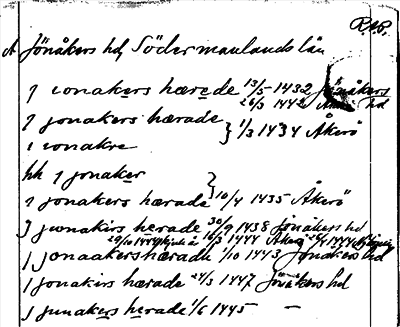 RAP.
A Jönåkers hd, Södermanlands län
J ionakers hærede 13/5 1432 Jönåkers
26/3 1442 hd
J jonakers hærade } 1/3 1434 Åkerö
i ionakre
hh J jonaker
J jonakers hærade } 10/4 1435 Åkerö
J junakirs herade 30/9 1438 Jönåkers hd
29/10 1444 1444 Åkerö 1444
J jonaakershæradh 1/10 1443 Jönåkers hd
J jonakirs hærade 24/3 1447 Jönåkers hd
J junakers herade 1/6 1445 —